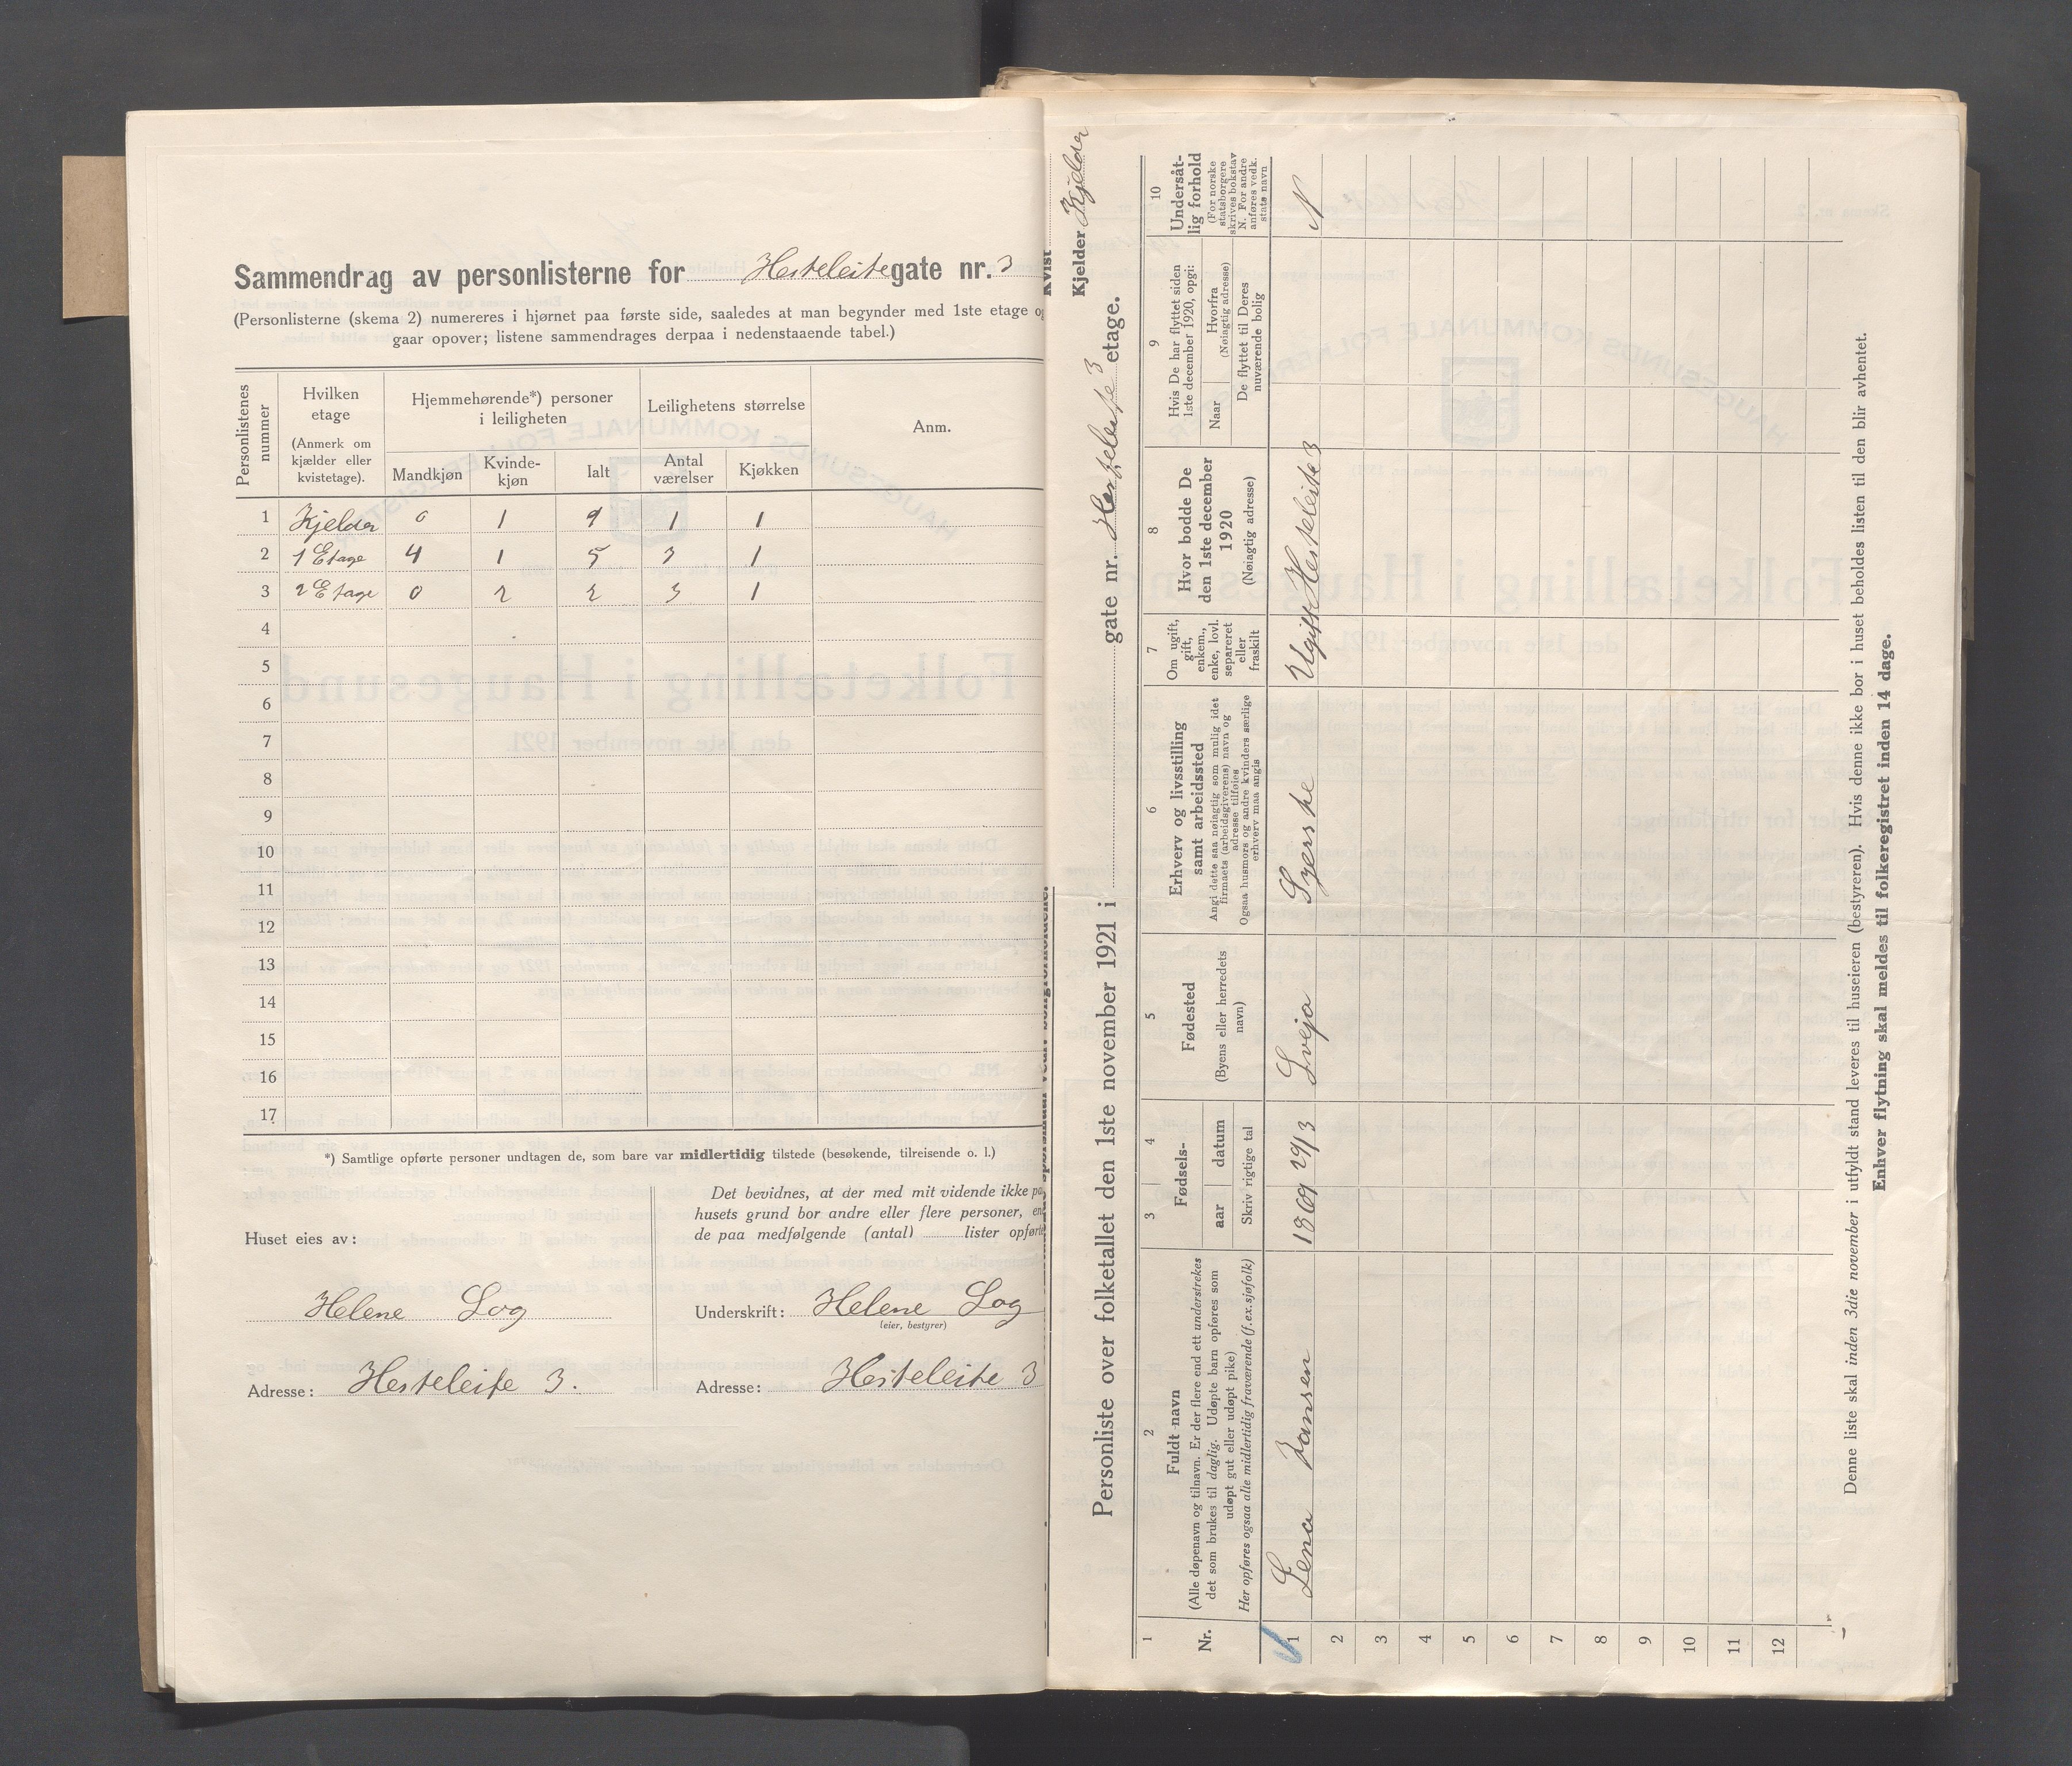 Sammendrag av personlisterne for Hesteleite gate nr. 3
(Personlisterne (skema 2) numereres i hjørnet paa første side, saaledes at man begynder med 1ste etage og
gaar opover; listene sammendrages derpaa i nedenstaaende tabel.)
Personlistenes nummer
Hvilken etage
(Anmerk om kjælder eller kvistetage).
Hjemmehørende*) personer i leiligheten
Leilighetens størrelse
Anm.
Mandkjøn Kvinde-kjøn Ialt Antal værelser Kjøkken
1 Kjelder 0 1 1 1 1
2 1 Etage 4 1 5 3 1
3 2 Etage 0 2 2 3 1
4
5
6
7
8
9
10
11
12
13
14
15
16
17
*) Samtlige opførte personer undtagen de, som bare var midlertidig tilstede (besøkende, tilreisende o. l.)
Huset eies av:
Helene Log
Adresse: Hesteleite 3.
Det bevidnes, at der med mit vidende ikke pa
husets grund bor andre eller flere personer, en
de paa medfølgende (antal) lister opførte
Underskrift: Helene Log
(eier, bestyrer)
Adresse: Hesteleite 3
Kvist
Kjelder Kjelder
Personliste over folketallet den 1ste november 1921 i gate nr. Hesteleite 3 etage.
1
Nr.
2
Fuldt navn
(Alle døpenavn og tilnavn. Er der flere end ett understrekes
det som brukes til daglig. Udøpte barn opføres som
udøpt gut eller udøpt pike)
Her opføres ogsaa alle midlertidig fraværende (f.ex. sjøfolk)
3 4
Fødsels-
aar datum
Skriv rigtige tal
5
Fødested
(Byens eller herredets
navn)
6
Erhverv og livsstilling
samt arbeidssted
Angi dette saa nøiagtig som mulig idet
firmaets (arbeidsgiverens) navn og
adresse tilføies
Ogsaa husmors og andre kvinders særlige
erhverv maa angis
7
Om ugift,
gift,
enkem.,
enke, lovl.
separeret
eller
fraskilt
8
Hvor bodde De
den 1ste december
1920
(Nøiagtig adresse)
9
Hvis De har flyttet siden
1ste december 1920, opgi:
Naar
Hvorfra
(Nøiagtig adresse)
De flyttet til Deres
nuværende bolig
10
Undersåt-
lig forhold
(For norske
statsborgere
skrives bokstav
N. For andre
anføres vedk.
stats navn
1 Lena Hansen 1869 29/3 Sveio Syerske Ugift Hesteleite 3 N
2
3
4
5
6
7
8
9
10
11
12
Denne liste skal inden 3die november i utfyldt stand leveres til huseieren (bestyreren). Hvis denne ikke bor i huset beholdes listen til den blir avhentet.
Enhver flytning skal meldes til folkeregistret inden 14 dage.